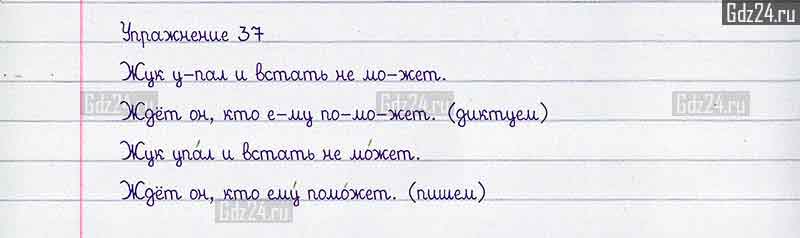 Gdz24.ru
Упражнение 37
Жук у-пал и встать не мо-жет.
Gdz24.ru Gdz24.ru Gdz24.ru
Ждёт он, кто е-му по-мо-жет. (диктуем)
Жук упа́л и встать не мо́жет.
Ждёт он, кто ему́ помо́жет. (пишем)
Gdz24.ru